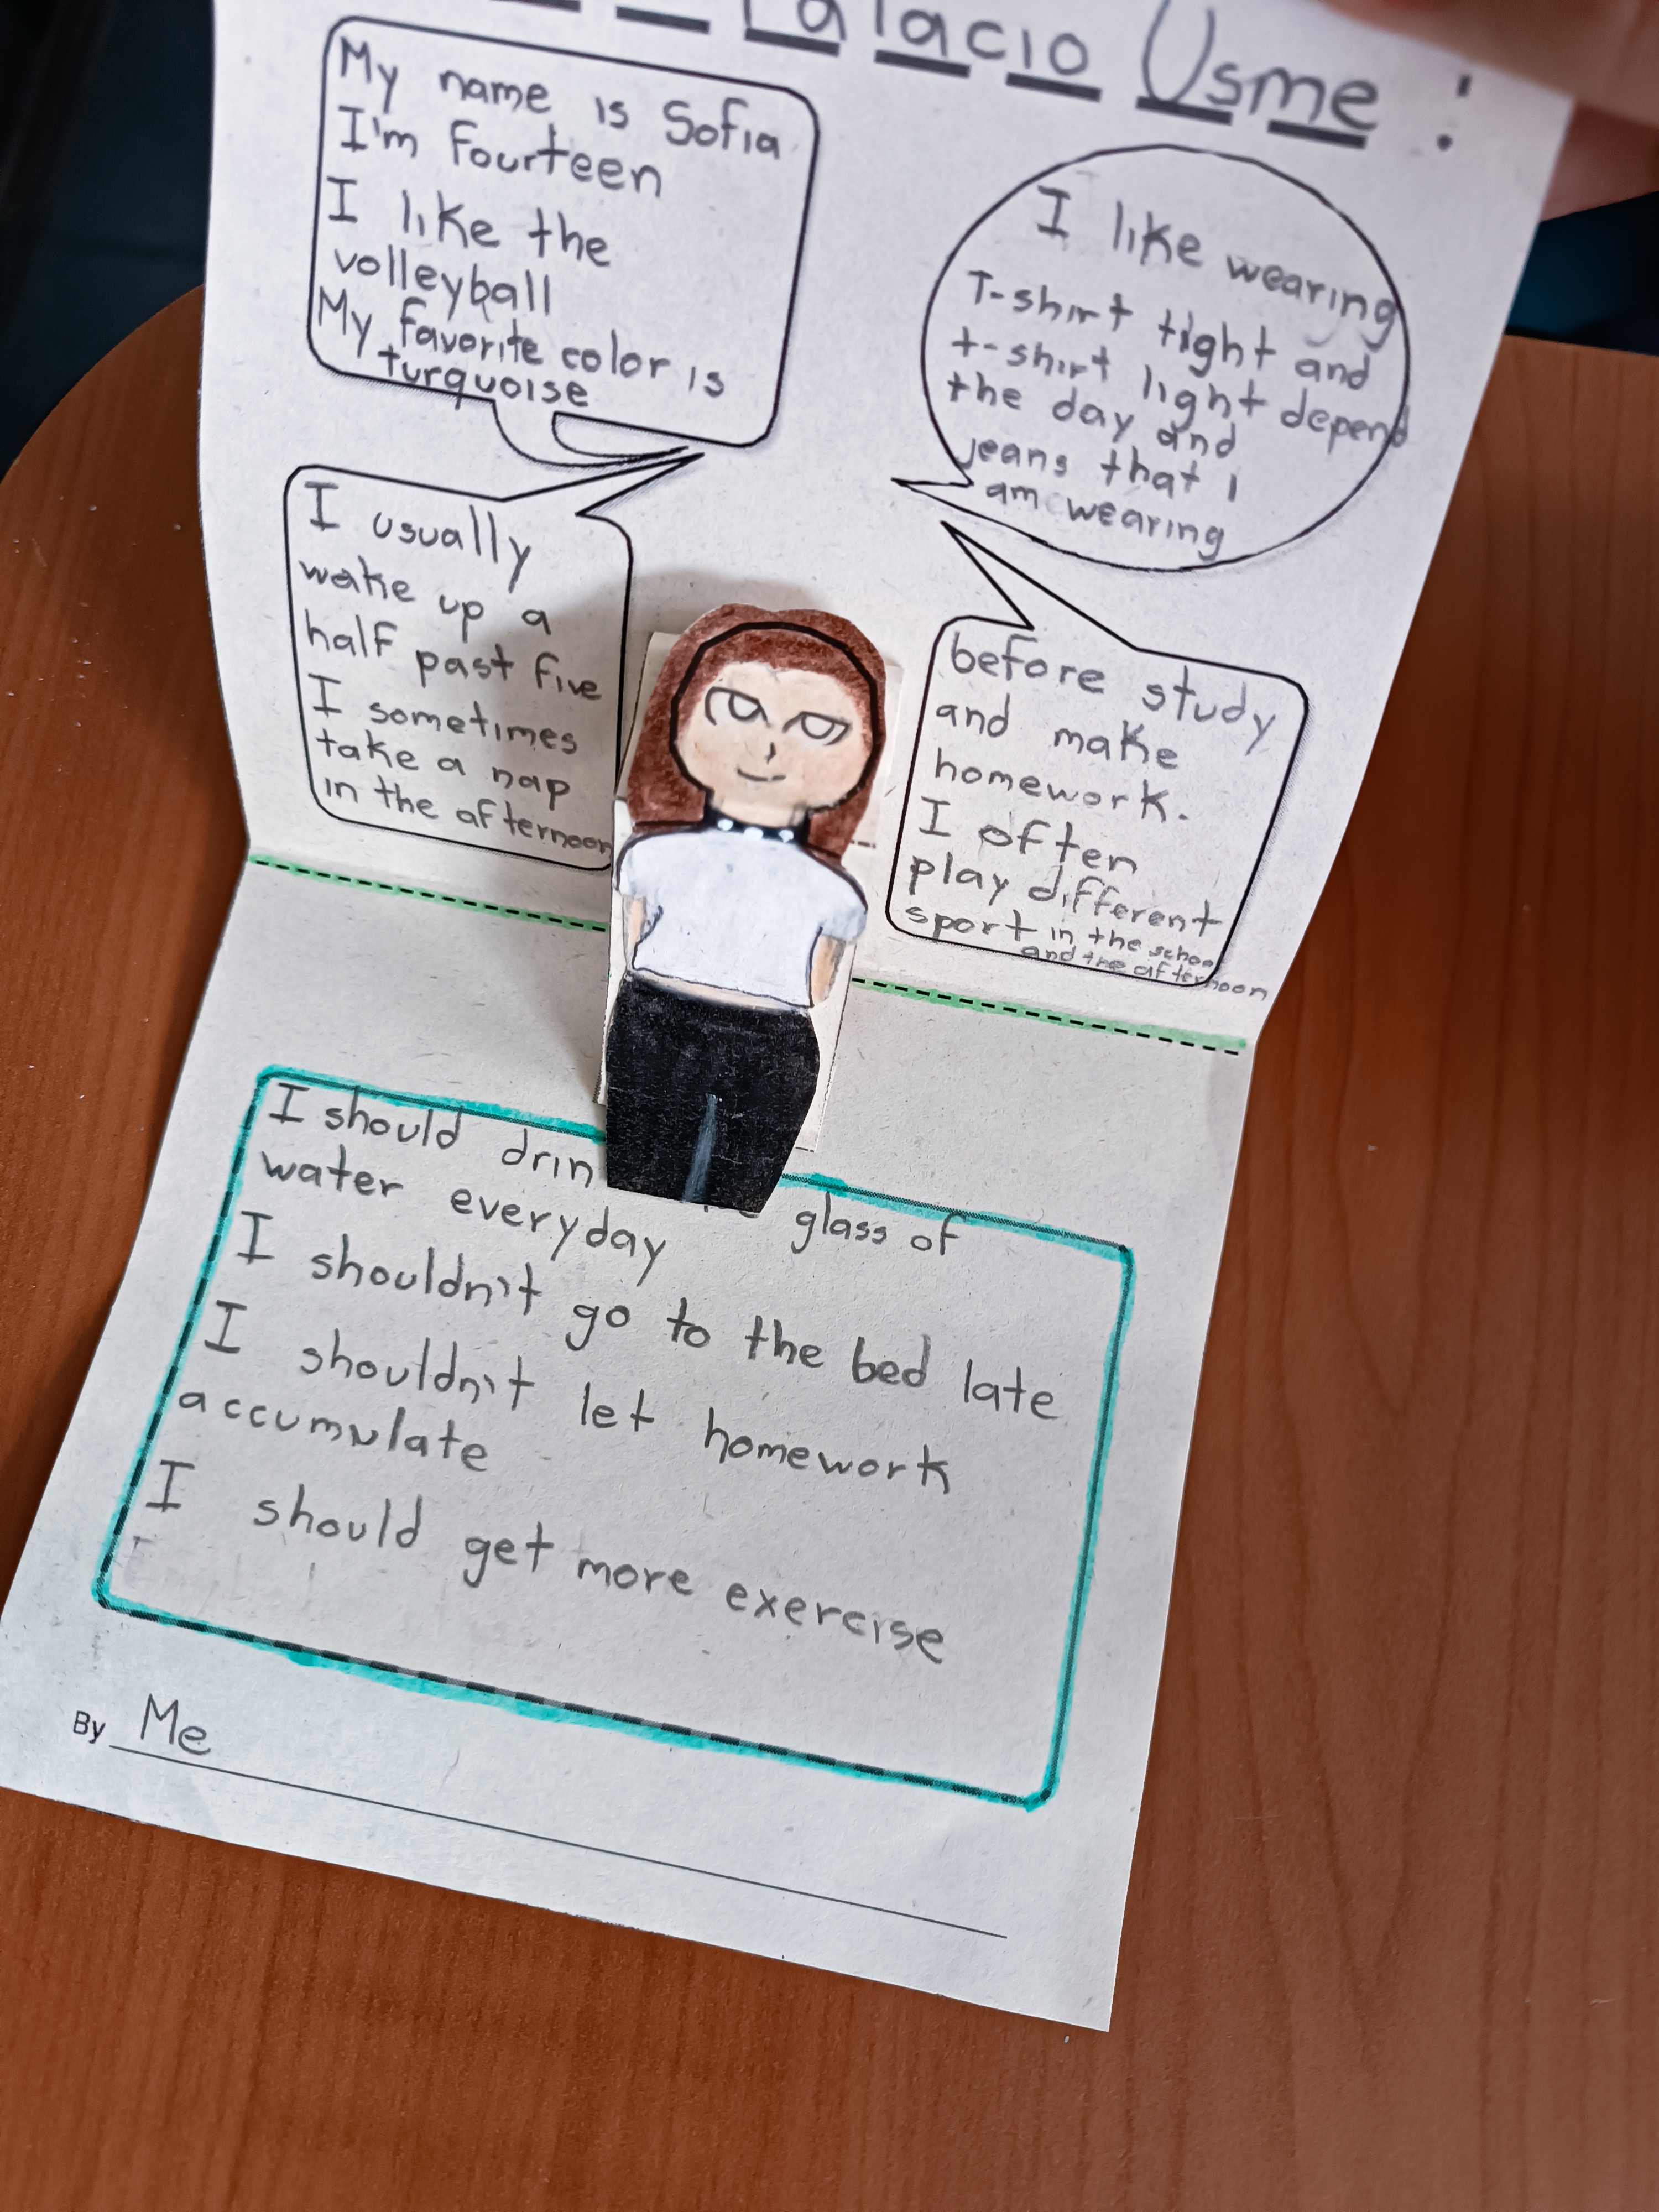 Palacio Usme :
My name is Sofia
I'm fourteen
I like the
volleyball
My favorite color is
turquoise
I like wearing
T-shirt tight and
t-shirt light depend
the day and
jeans that I
am wearing
I usually
wake up a
half past five
I sometimes
take a nap
in the afternoon
before study
and make
homework.
I often
play different
sport in the school
and the afternoon
I should glass of
water everyday
I shouldn't go to the bed late
I shouldn't let homework
accumulate
I should get more exercise
By Me